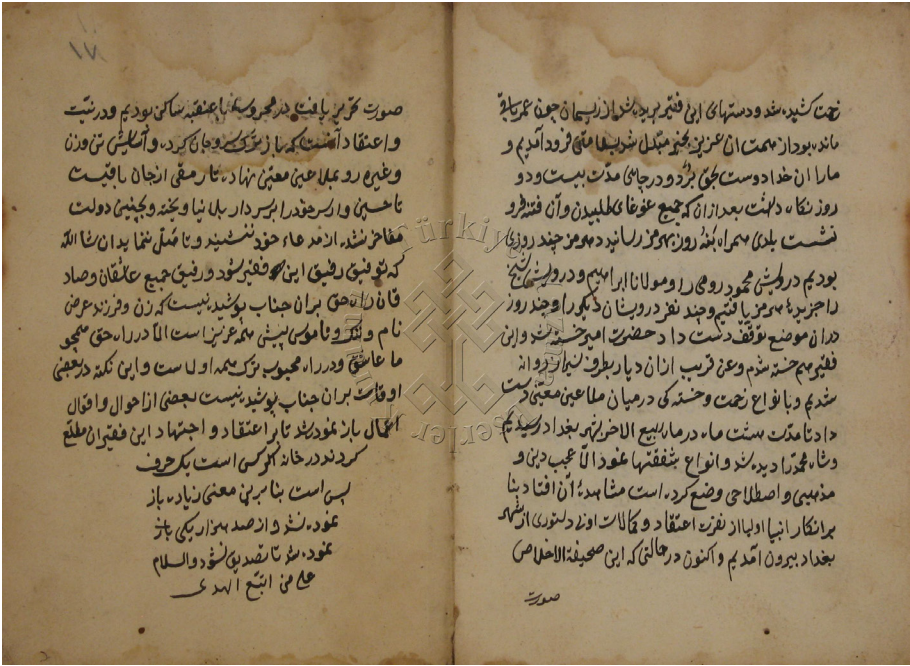 زحمت کشیده شد و دستهای این فقیر بریده شد از ریسمان چون عمر باقی
مانده بود از صحت آن عزیز بخیر مبدل شد بسلامتی فرود آمدیم و
ما را آن خدا دوست بحق برد و در جایی مدت بیست و دو
روز نگاه داشت بعد از آن که جمیع غوغای طلبیدن و آن فتنه فرو
نشست بلدی همراه بنه روز بهرمز رسانید در هرمز چند روزی
بودیم درویش محمود رومی را و مولانا ابراهیم و درویش شیخ
را جزیرهٔ هرمز یافتیم و چند نفر درویشان دیگر را و چند روز
در آن موضع توقف دست داد حضرت امیر خسته شد و این
فقیر هم خسته شدم و عن قریب از آن دیار بطرف شیراز روانه
شدیم و با نواع زحمت و خستهکی در میان ملاعین معتنی دست
داد تا مدت شت ماه در ماه ربیع الاخر بشهر بغداد رسیدیم
و شاه محمد را دیده شد و انواع شفقتها نمود الا عجب دینی و
مذهبی و اصطلاحی وضع کرده است مشاهدهٔ آن افتاد بنا
بر انکار انبیا اولیا از نفرت اعتقاد و کمالات او از دلتوری از شهر
بغداد بیرون آمدیم و اکنون در حالتی که این صحیفة الاخلاص
صورت
۱۷
صورت تحریر یافت در محروسهٔ با عنقبه ساکن بودیم و در نیت
و اعتقاد آنست که باز ترک سر و جان کرده و آسایش تن و زن
و غیره رو بملاعین معتنی نهاده تا رمقی از جان باقیست
تا حسین وار سر خود را بر سر دار بلا نیاویخته و بچنین دولت
مفاخر نشده از مدعاء خود ننشیند و تأمل ننماید ان شا الله
که توفیق رفیق این فقیر شود و رفیق جمیع عاشقان و صاد
قان راه حق بر آن جناب پوشیده نیست که زن و فرزند عرض
نام و ننگ و ناموس پیش همه عزیز است الا در راه حق همچو
ما عاشق و در راه محبوب ترک همه اولی است و این نکته در بعضی
اوقات بر آن جناب پوشیده نیست بعضی از احوال و اقوال
اعمال باز نموده شد تا بر اعتقاد و اجتهاد این فقیران مطلع
کردند در خانه اگر کس است یک حرف
بس است بنا برین معنی زیاده باز
نموده نشد و از صد هزار یکی باز
نموده شد تا تصدیع نشود والسلام
علی من اتبع الهدی